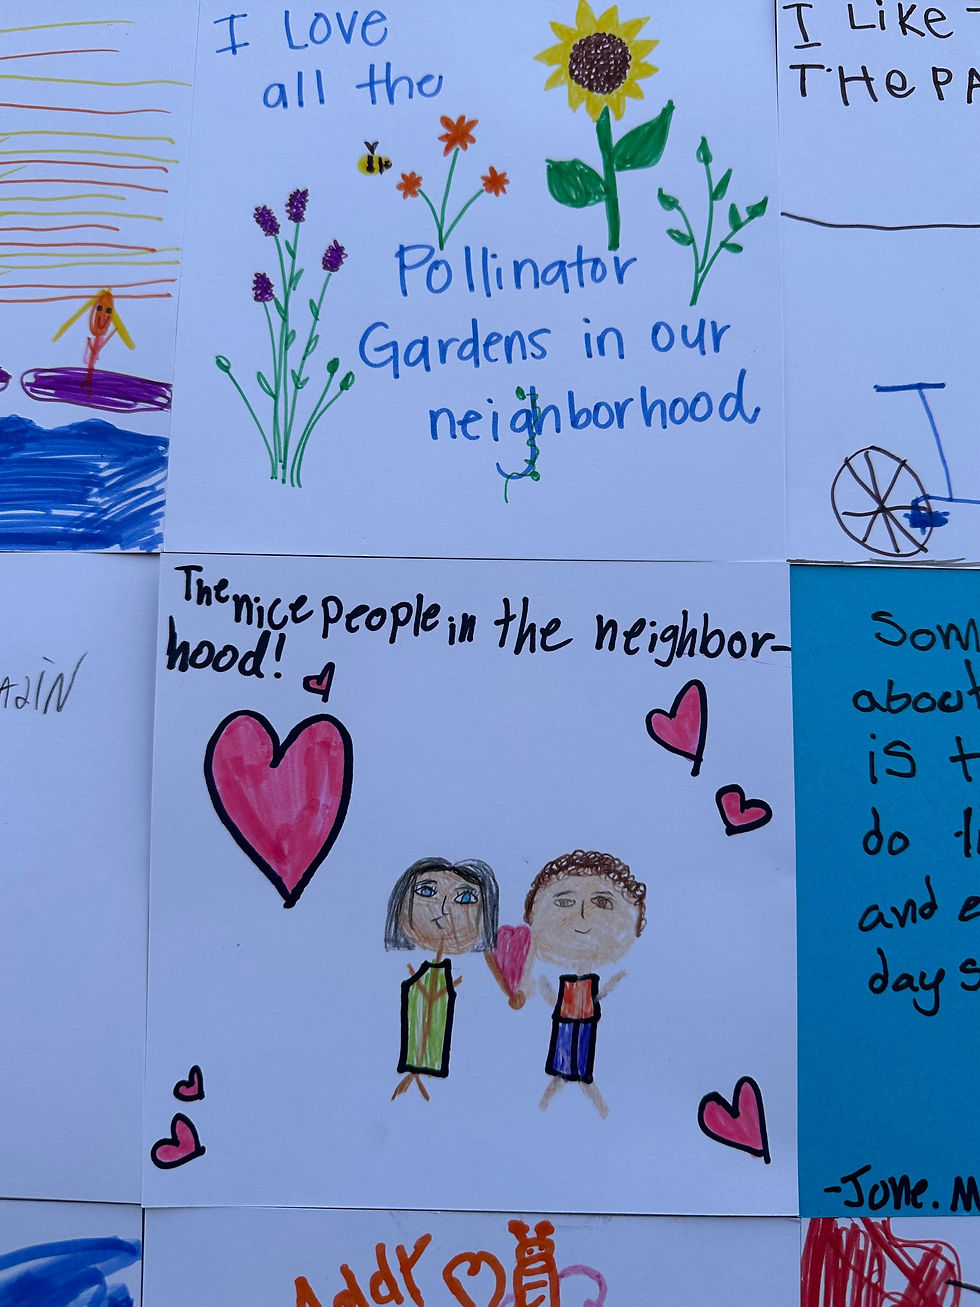 I Love
all the
Pollinator
Gardens in our
neighborhood
I LiKe
THe PA
The nice people in the neighbor-
hood!
Som
about
is t
do
and
day s
-Jone. M
Addy